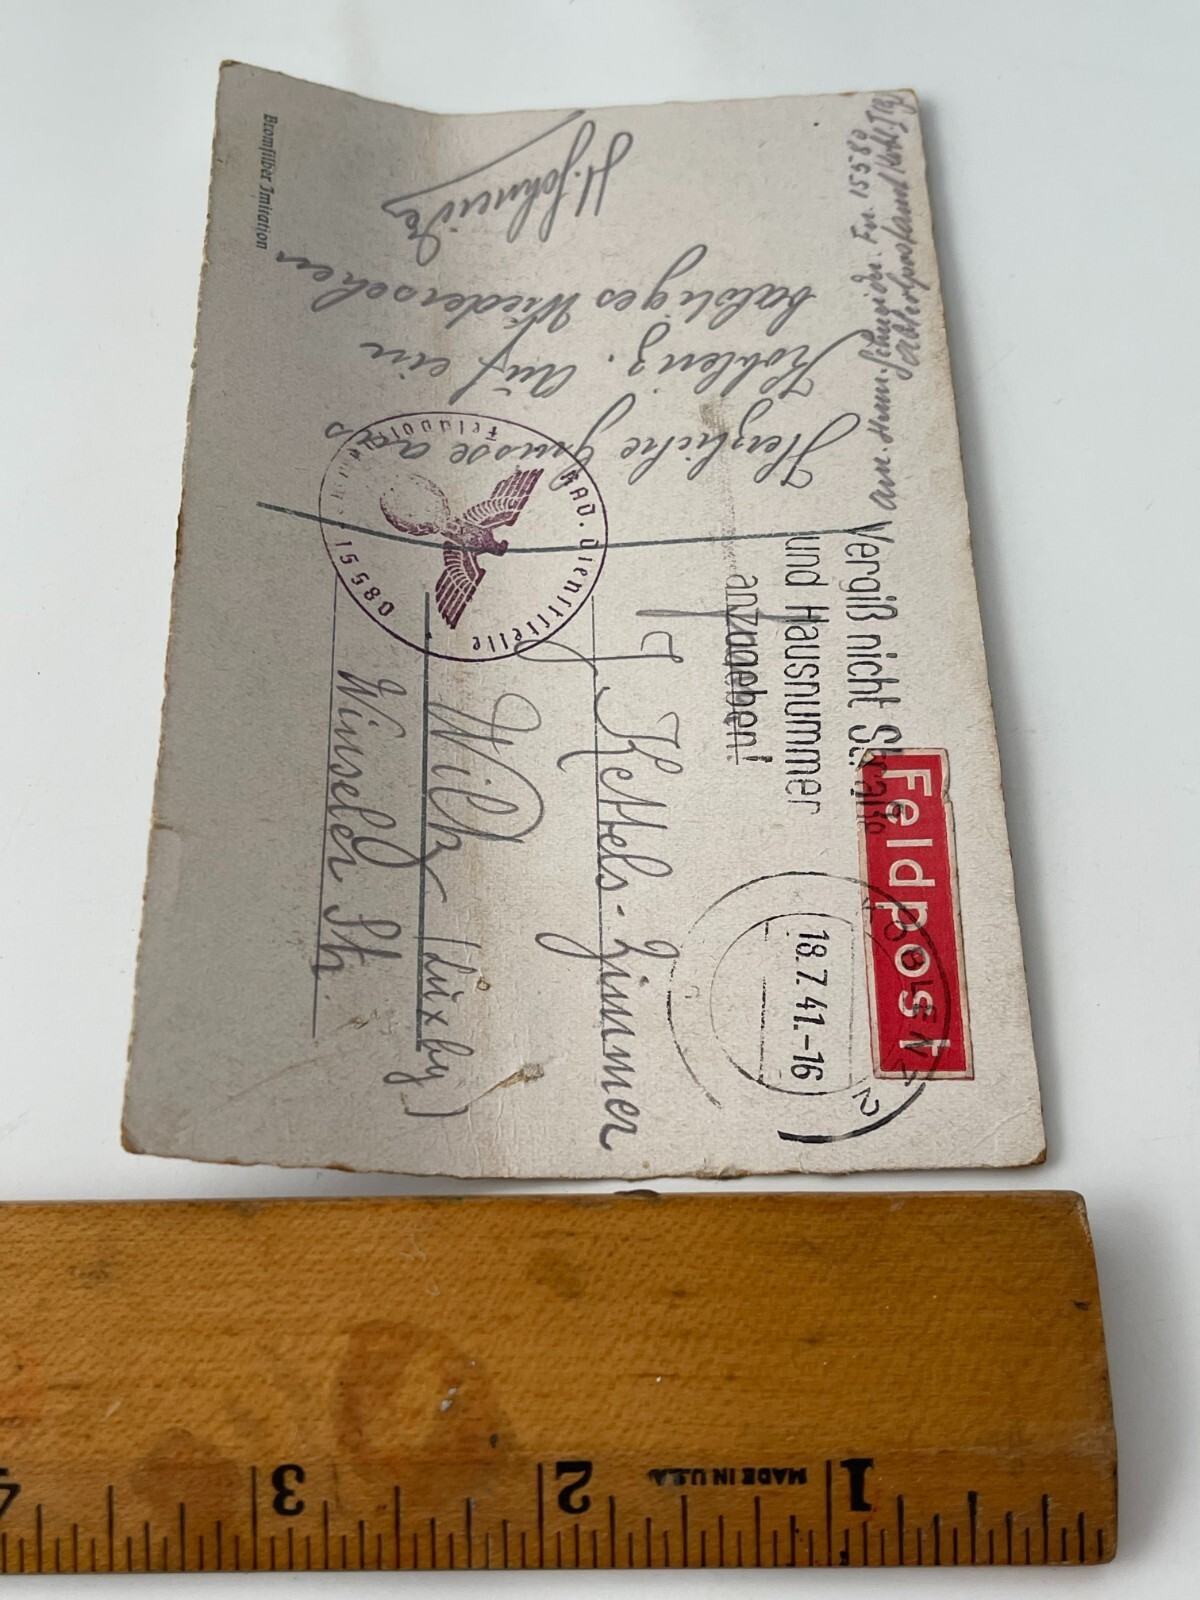 Herzliche Grüsse aus
Koblenz. Auf ein
baldiges Wiedersehen
H. Schneider
Bromsilber Imitation
RAD. Dienststelle
15580
Vergiß nicht Straße
und Hausnummer
anzugeben!
Feldpost
KOBLENZ
2
18.7.41.-16
J Kettels-Zimmer
Wiltz (Luxbg)
Winseler Str.
Schneider. Fn. 15580
1
MADE IN U.S.A.
2
3
4